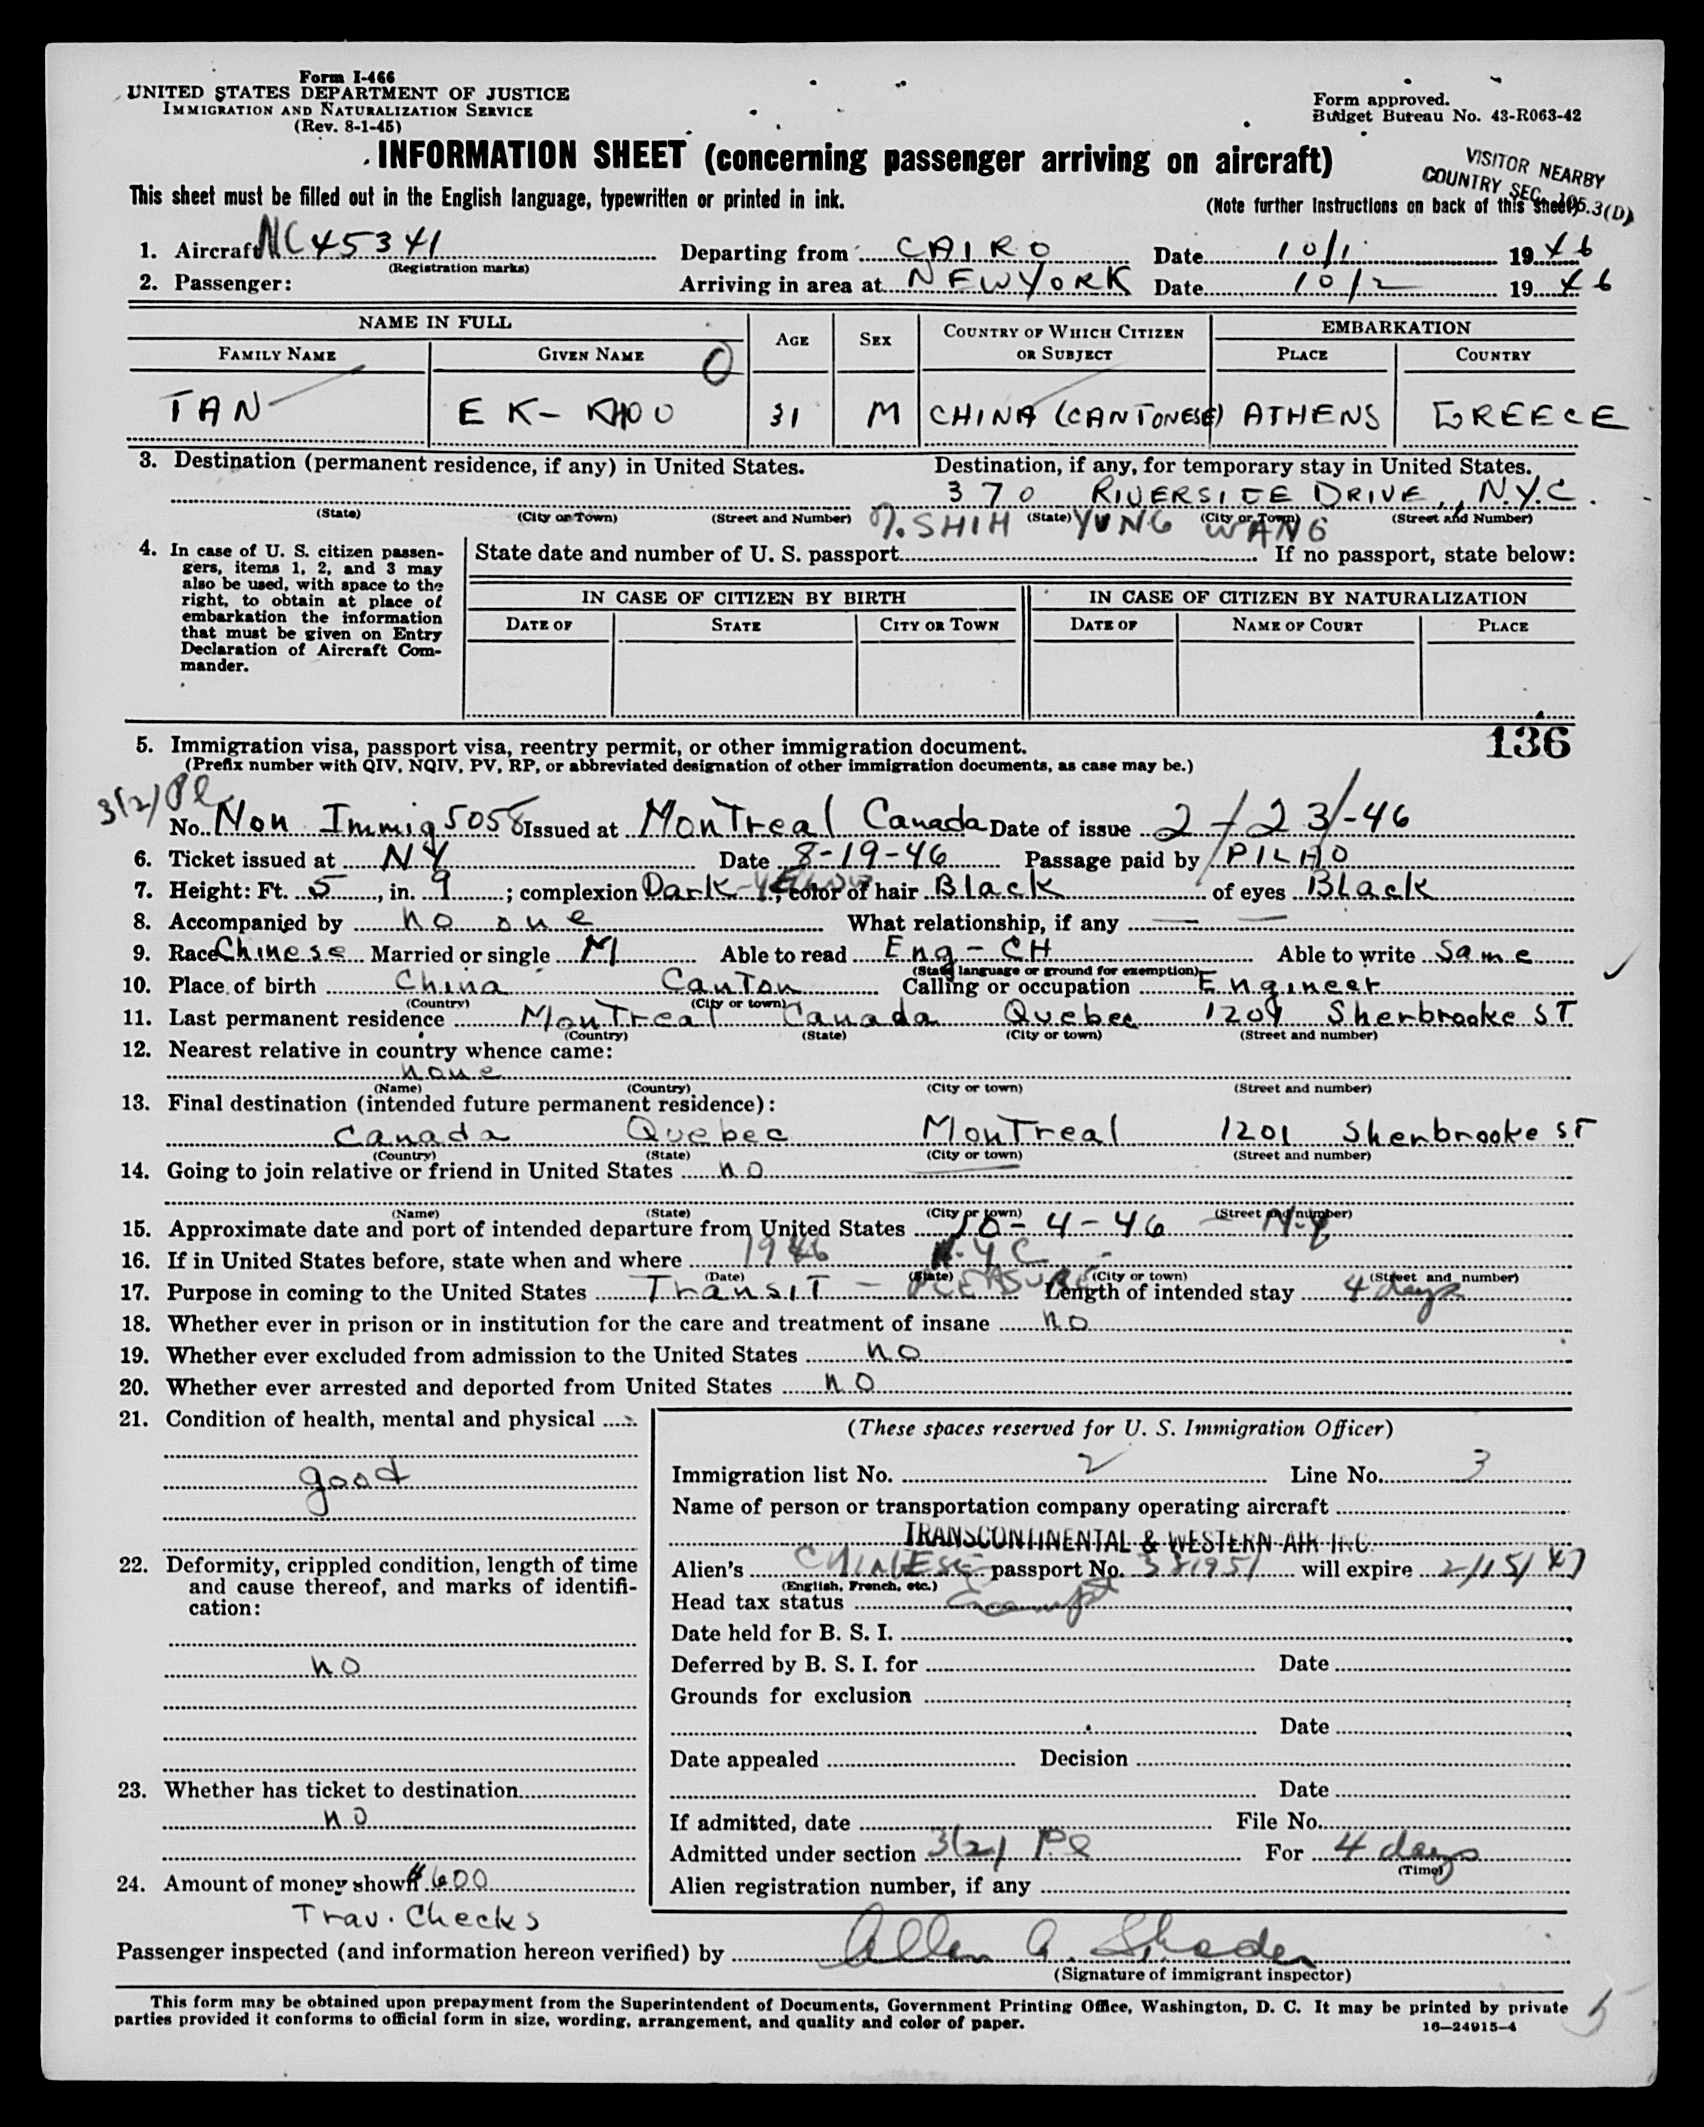 Form I-466
UNITED STATES DEPARTMENT OF JUSTICE
IMMIGRATION AND NATURALIZATION SERVICE
(Rev. 8-1-45)
Form approved.
Budget Bureau No. 43-R063-42
INFORMATION SHEET (concerning passenger arriving on aircraft)
VISITOR NEARBY
COUNTRY SEC. 105.3(D)
This sheet must be filled out in the English language, typewritten or printed in ink.
(Note further instructions on back of this sheet)
1. Aircraft NC45341 Departing from CAIRO Date 10/1 1946
(Registration marks)
2. Passenger: Arriving in area at NEW YORK Date 10/2 1946
NAME IN FULL AGE SEX COUNTRY OF WHICH CITIZEN OR SUBJECT EMBARKATION
FAMILY NAME GIVEN NAME PLACE COUNTRY
TAN EK-KHOO 31 M CHINA (CANTONESE) ATHENS GREECE
3. Destination (permanent residence, if any) in United States. Destination, if any, for temporary stay in United States.
370 RIVERSIDE DRIVE, N.Y.C.
(State) (City or Town) (Street and Number) (State) (City or Town) (Street and Number)
SHIH YUNG WANG
4. In case of U. S. citizen passen-
gers, items 1, 2, and 3 may
also be used, with space to the
right, to obtain at place of
embarkation the information
that must be given on Entry
Declaration of Aircraft Com-
mander.
State date and number of U. S. passport If no passport, state below:
IN CASE OF CITIZEN BY BIRTH IN CASE OF CITIZEN BY NATURALIZATION
DATE OF STATE CITY OR TOWN DATE OF NAME OF COURT PLACE
136
5. Immigration visa, passport visa, reentry permit, or other immigration document.
(Prefix number with QIV, NQIV, PV, RP, or abbreviated designation of other immigration documents, as case may be.)
3(2) Pl
No. Non Immig 5058 Issued at Montreal Canada Date of issue 2-23-46
6. Ticket issued at NY Date 8-19-46 Passage paid by PILHO
7. Height: Ft. 5, in. 9; complexion Dark-YELLOW; color of hair Black of eyes Black
8. Accompanied by no one What relationship, if any — —
9. Race Chinese Married or single M Able to read Eng-CH Able to write Same
(State language or ground for exemption)
10. Place of birth China Canton Calling or occupation Engineer
(Country) (City or town)
11. Last permanent residence Montreal Canada Quebec 1201 Sherbrooke ST
(Country) (State) (City or town) (Street and number)
12. Nearest relative in country whence came:
none
(Name) (Country) (City or town) (Street and number)
13. Final destination (intended future permanent residence):
Canada Quebec Montreal 1201 Sherbrooke ST
(Country) (State) (City or town) (Street and number)
14. Going to join relative or friend in United States no
(Name) (State) (City or town) (Street and number)
15. Approximate date and port of intended departure from United States 10-4-46 — N-Y
16. If in United States before, state when and where 1946 N.Y.C.
(Date) (State) (City or town) (Street and number)
17. Purpose in coming to the United States Transit - PLEASURE Length of intended stay 4 days
18. Whether ever in prison or in institution for the care and treatment of insane no
19. Whether ever excluded from admission to the United States no
20. Whether ever arrested and deported from United States no
21. Condition of health, mental and physical
good
22. Deformity, crippled condition, length of time
and cause thereof, and marks of identifi-
cation:
no
23. Whether has ticket to destination
no
24. Amount of money shown $600
Trav. Checks
(These spaces reserved for U. S. Immigration Officer)
Immigration list No. 2 Line No. 3
Name of person or transportation company operating aircraft
TRANSCONTINENTAL & WESTERN AIR INC.
Alien's CHINESE passport No. 381951 will expire 2/15/47
(English, French, etc.)
Head tax status Exempt
Date held for B. S. I.
Deferred by B. S. I. for Date
Grounds for exclusion
Date
Date appealed Decision
Date
If admitted, date File No.
Admitted under section 3(2) Pl For 4 days
(Time)
Alien registration number, if any
Passenger inspected (and information hereon verified) by Allen A. Shader
(Signature of immigrant inspector)
This form may be obtained upon prepayment from the Superintendent of Documents, Government Printing Office, Washington, D. C. It may be printed by private
parties provided it conforms to official form in size, wording, arrangement, and quality and color of paper.
16—24915-4
5